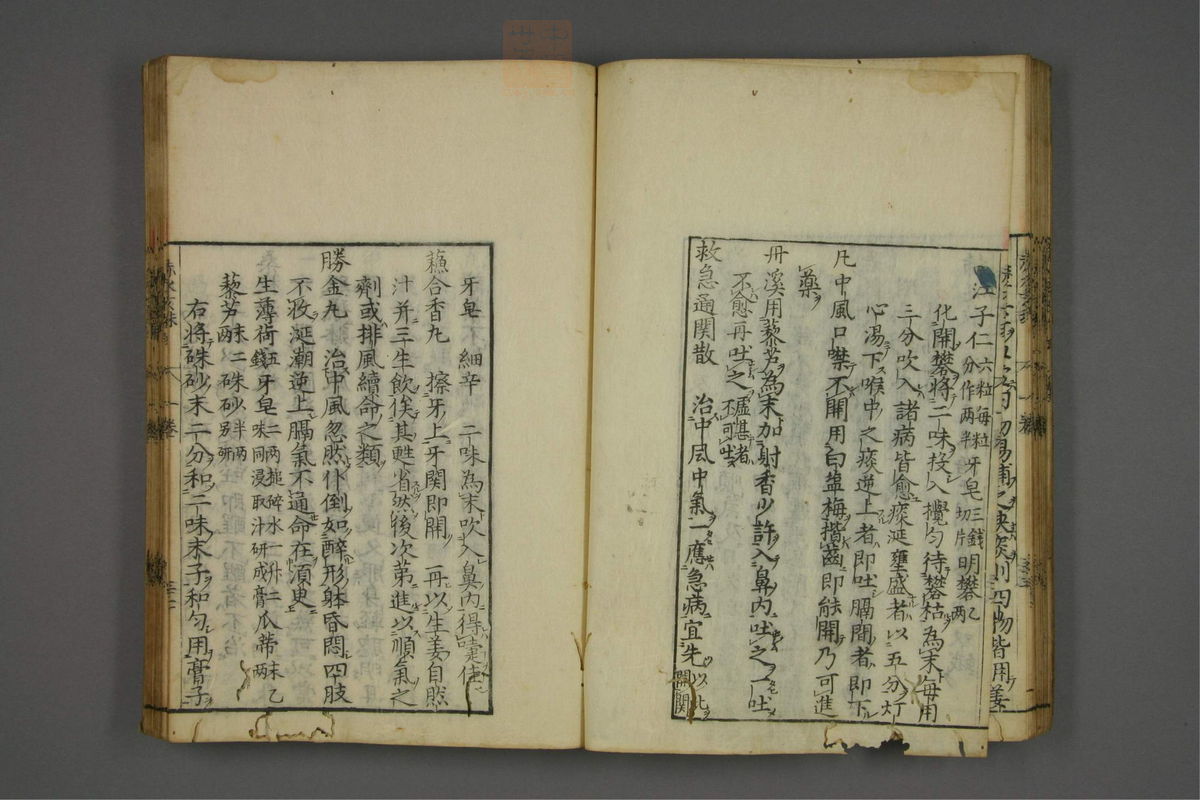 江子仁六粒每粒分作兩半牙皂三錢切片明礬乙兩
化開礬將二味投入攪勻待礬枯為末每用
三分吹入諸病皆愈痰涎壅盛者以五分灯
心湯下喉中之痰逆上者即吐膈間者即下
凡中風口噤不開用白塩梅揩齒即能開乃可進
藥
丹溪用藜芦為末加射香少許入鼻內吐之一吐
不愈再吐之虛甚者不可吐
救急通関散　治中风中氣一應急病宜先以此開関
牙皂　細辛　二味為末吹入鼻內得嚏佳
蘓合香丸　擦牙上牙関即開　再以生姜自然
汁并三生飲俟其甦省然後次第進以順氣之
劑或排風續命之類
勝金丸　治中風忽然仆倒如醉形躰昏悶四肢
不收涎潮逆上膈氣不通命在須臾
生薄荷五錢牙皂二兩搥碎水一升二味同浸取汁研成膏瓜蒂末乙兩
藜芦末二兩硃砂半兩别研
右將硃砂末二分和二味末子和勻用膏子